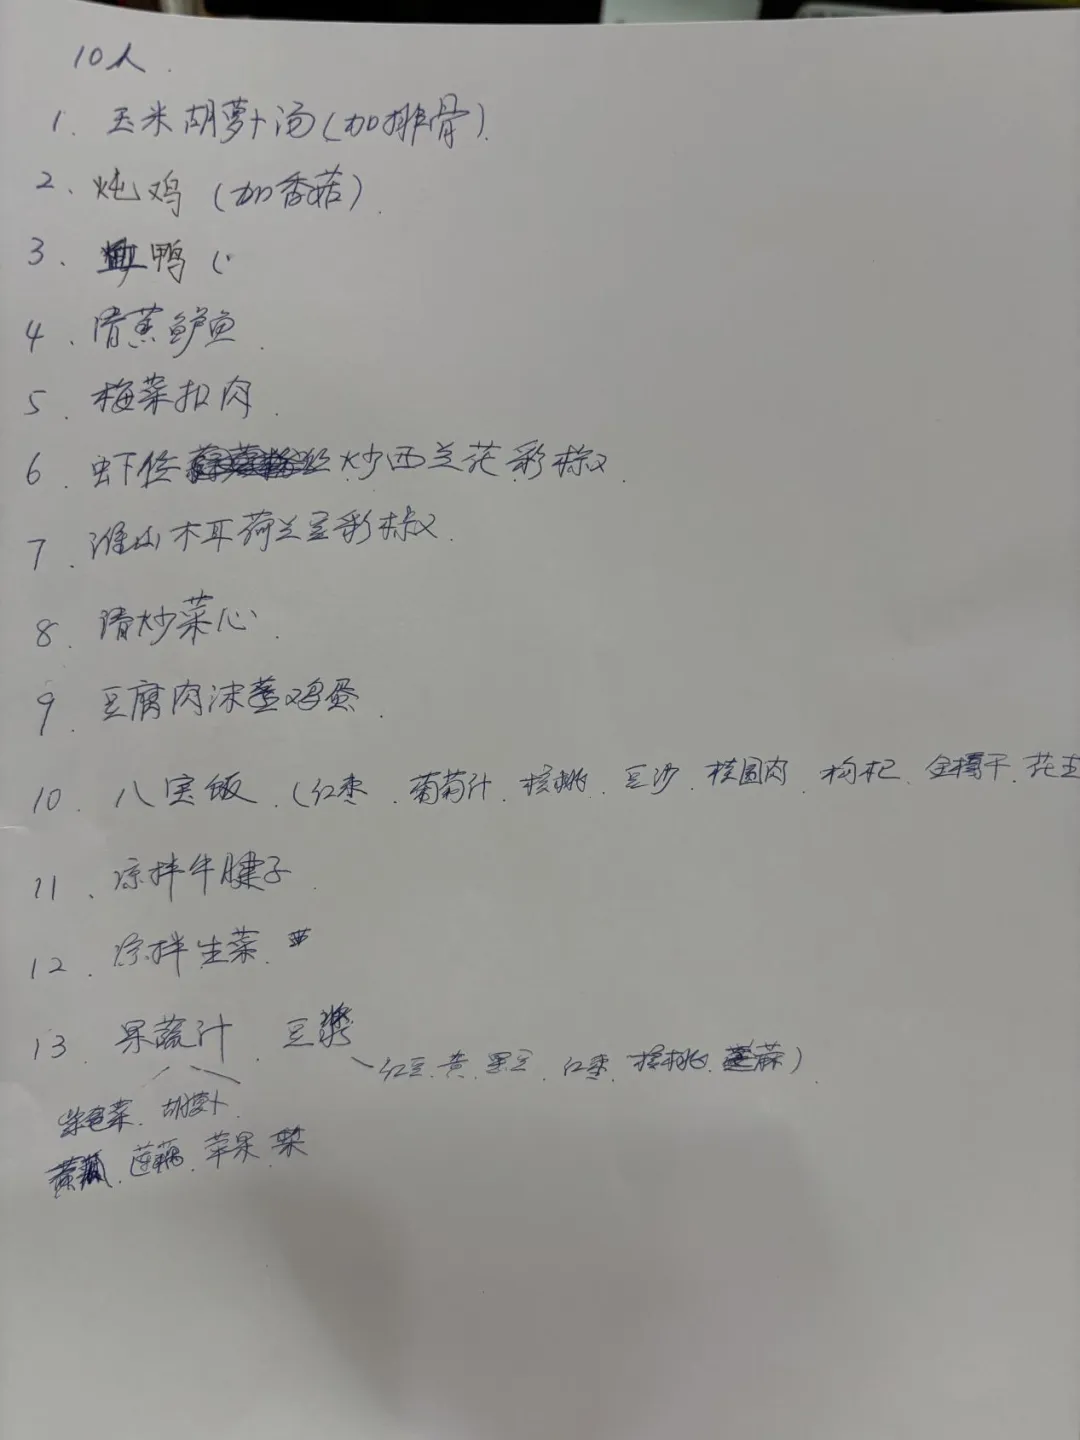 10人.
1. 玉米胡萝卜汤(加排骨).
2. 炖鸡(加香菇).
3. 鸭(
4. 清蒸鲈鱼.
5. 梅菜扣肉.
6. 虾仁 炒西兰花彩椒.
7. 淮山木耳荷兰豆彩椒.
8. 清炒菜心.
9. 豆腐肉沫蒸鸡蛋.
10. 八宝饭.(红枣.葡萄汁.核桃.豆沙.桂圆肉.枸杞.金橘干.花生
11. 凉拌牛腱子.
12. 凉拌生菜.
13. 果蔬汁.豆浆
红豆.黄.黑豆.红枣.核桃. 麻).
紫色菜.胡萝卜.
莲藕.苹果.